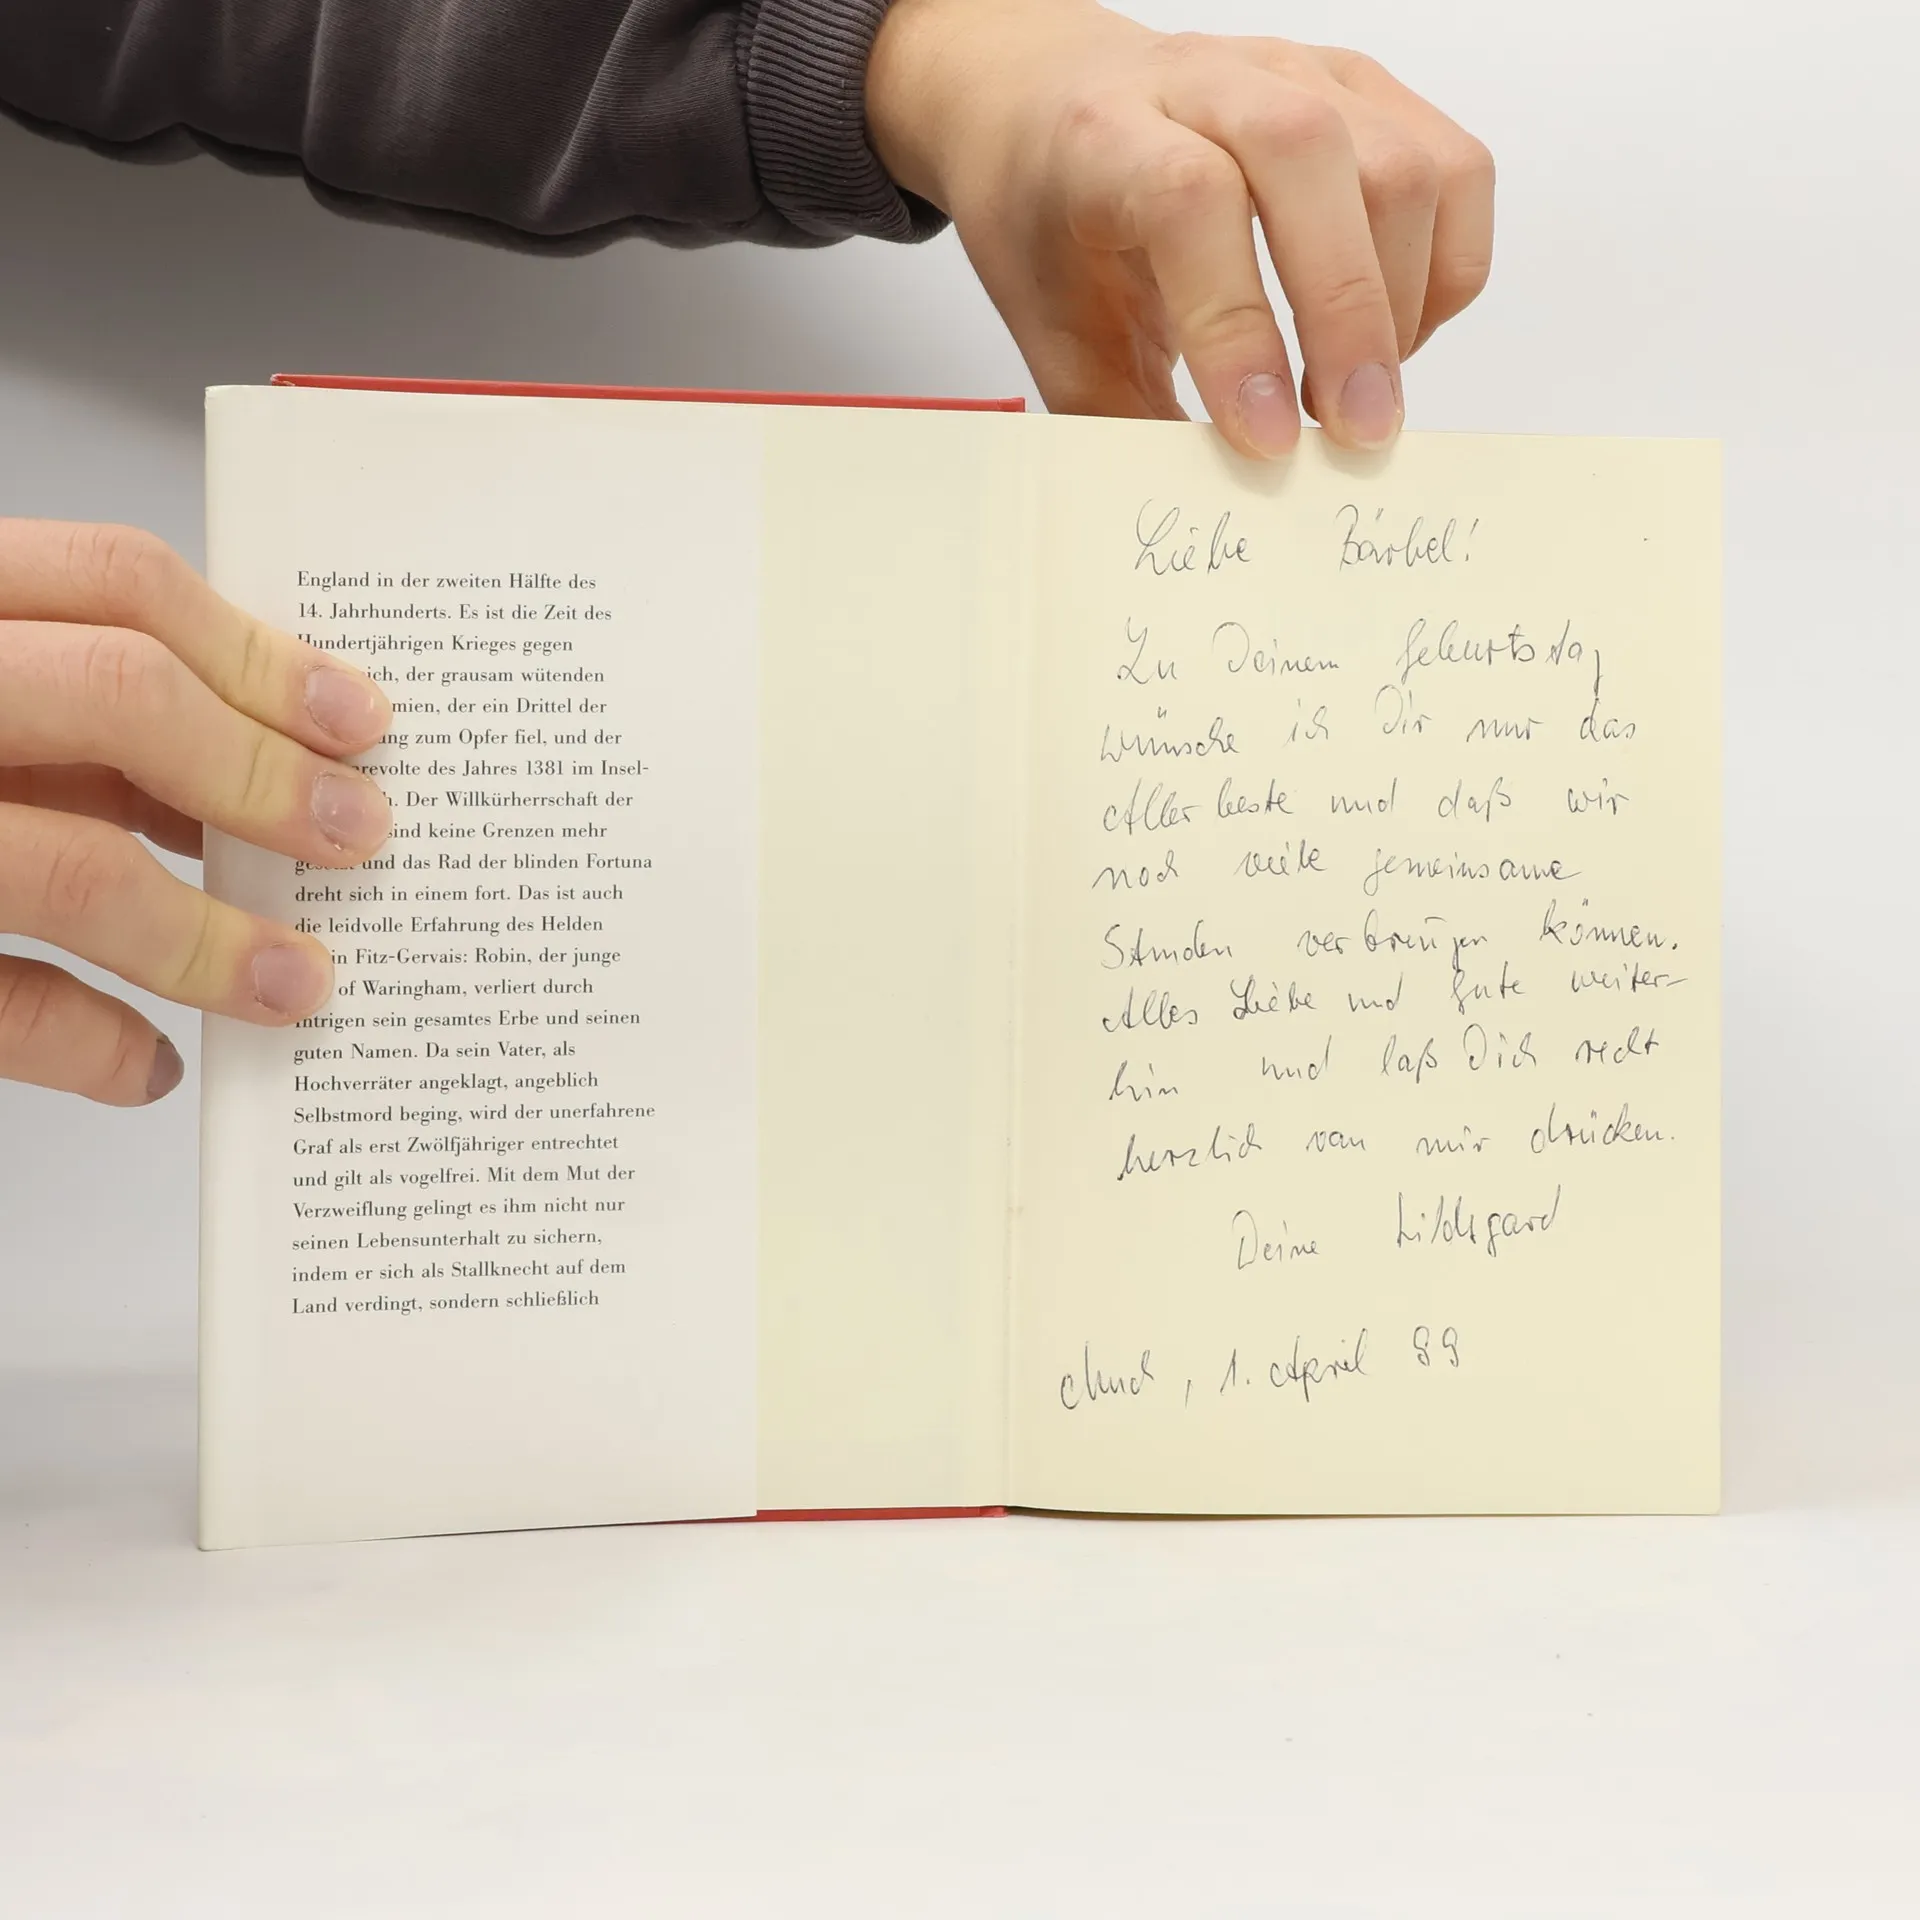 England in der zweiten Hälfte des
14. Jahrhunderts. Es ist die Zeit des
Hundertjährigen Krieges gegen
ich, der grausam wütenden
mien, der ein Drittel der
ung zum Opfer fiel, und der
revolte des Jahres 1381 im Insel-
h. Der Willkürherrschaft der
sind keine Grenzen mehr
gesetzt und das Rad der blinden Fortuna
dreht sich in einem fort. Das ist auch
die leidvolle Erfahrung des Helden
in Fitz-Gervais: Robin, der junge
of Waringham, verliert durch
Intrigen sein gesamtes Erbe und seinen
guten Namen. Da sein Vater, als
Hochverräter angeklagt, angeblich
Selbstmord beging, wird der unerfahrene
Graf als erst Zwölfjähriger entrechtet
und gilt als vogelfrei. Mit dem Mut der
Verzweiflung gelingt es ihm nicht nur
seinen Lebensunterhalt zu sichern,
indem er sich als Stallknecht auf dem
Land verdingt, sondern schließlich
Liebe Bärbel!
Zu Deinem Geburtstag
wünsche ich Dir nur das
Allerbeste und daß wir
noch viele gemeinsame
Stunden verbringen können.
Alles Liebe und Gute weiter-
hin und laß Dich recht
herzlich von mir drücken.
Deine Hildegard
, 1. April 99